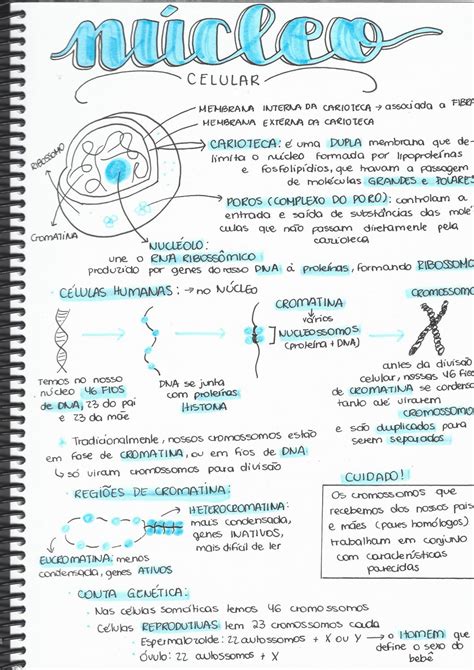 núcleo
CELULAR
MEMBRANA INTERNA DA CARIOTECA → associada a FIBR
MEMBRANA EXTERNA DA CARIOTECA
CARIOTECA: é uma DUPLA membrana que de-
limita o núcleo formada por lipoproteínas
e fosfolipídios, que travam a passagem
de moléculas GRANDES e POLARES
RIBOSSOMO
POROS (COMPLEXO DO PORO): controlam a
entrada e saída de substâncias das molé
culas que não passam diretamente pela
carioteca
CROMATINA
NUCLÉOLO:
une o RNA RIBOSSÔMICO
produzido por genes do nosso DNA à proteínas, formando RIBOSSOMO
CÉLULAS HUMANAS: → no NÚCLEO
CROMATINA
CROMOSSOMO
vários
NUCLEOSSOMOS
(proteína + DNA)
Temos no nosso
núcleo 46 FIOS
de DNA, 23 do pai
e 23 da mãe
DNA se junta
com proteínas
HISTONA
antes da divisão
celular, nossos 46 fios
de CROMATINA se conden
tanto até virarem
CROMOSSOMO
e são duplicados para
serem separados
Tradicionalmente, nossos cromossomos estão
em fase de CROMATINA, ou em fios de DNA
↳ só viram cromossomos para divisão
REGIÕES DE CROMATINA:
HETEROCROMATINA:
mais condensada,
genes INATIVOS,
mais difícil de ler
EUCROMATINA: menos
condensada, genes ATIVOS
CUIDADO!
Os cromossomos que
recebemos dos nossos pais
e mães (pares homólogos)
trabalham em conjunto
com características
parecidas
CONTA GENÉTICA:
• Nas células somáticas temos 46 cromossomos
• Células REPRODUTIVAS tem 23 cromossomos cada
Espermatozoide: 22 autossomos + X ou Y → o HOMEM que
define o sexo do
bebê
Óvulo: 22 autossomos + X